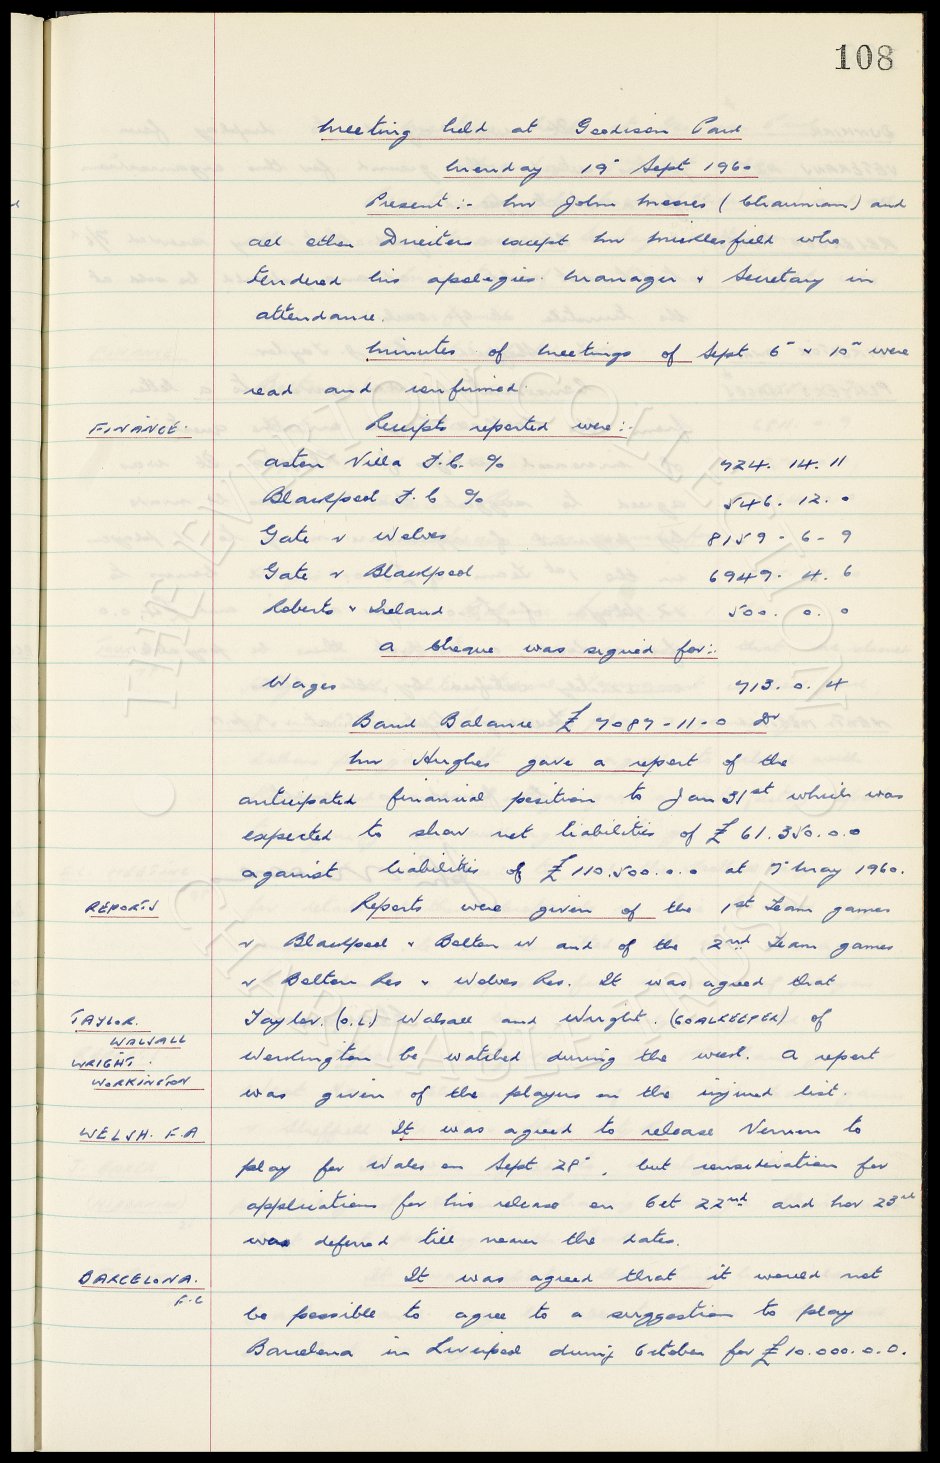 108
Meeting held at Goodison Park
Monday 19" Sept 1960
Present :- Mr John Moores (Chairman) and
all other Directors except Mr Micklesfield who
tendered his apologies. Manager & Secretary in
attendance.
Minutes of Meetings of Sept 6" & 10" were
read and confirmed.
FINANCE. Receipts reported were :-
Aston Villa F.C. % 724. 14. 11
Blackpool F.C % 546. 12. 0
Gate v Wolves 8159 - 6 - 9
Gate v Blackpool 6949. 4. 6
Roberts & Ireland 500. 0. 0
A Cheque was signed for :-
Wages 713. 0. 4
Bank Balance £ 7087-11-0 Dr
Mr Hughes gave a report of the
anticipated financial position to Jan 31st which was
expected to show net liabilities of £ 61.350.0.0
against liabilities of £ 110.500.0.0 at 7" May 1960.
REPORTS Reports were given of the 1st Team games
v Blackpool & Bolton W and of the 2nd Team games
v Bolton Res & Wolves Res. It was agreed that
TAYLOR. Taylor. (O.L) Walsall and Wright. (GOALKEEPER) of
WALSALL
WRIGHT. Workington be watched during the week. A report
WORKINGTON
was given of the players on the injured list.
WELSH. F.A It was agreed to release Vernon to
play for Wales on Sept 28", but consideration for
applications for his release on Oct 22nd and Nov 23rd
was deferred till nearer the dates.
BARCELONA. It was agreed that it would not
F.C
be possible to agree to a suggestion to play
Barcelona in Liverpool during October for £ 10.000.0.0.